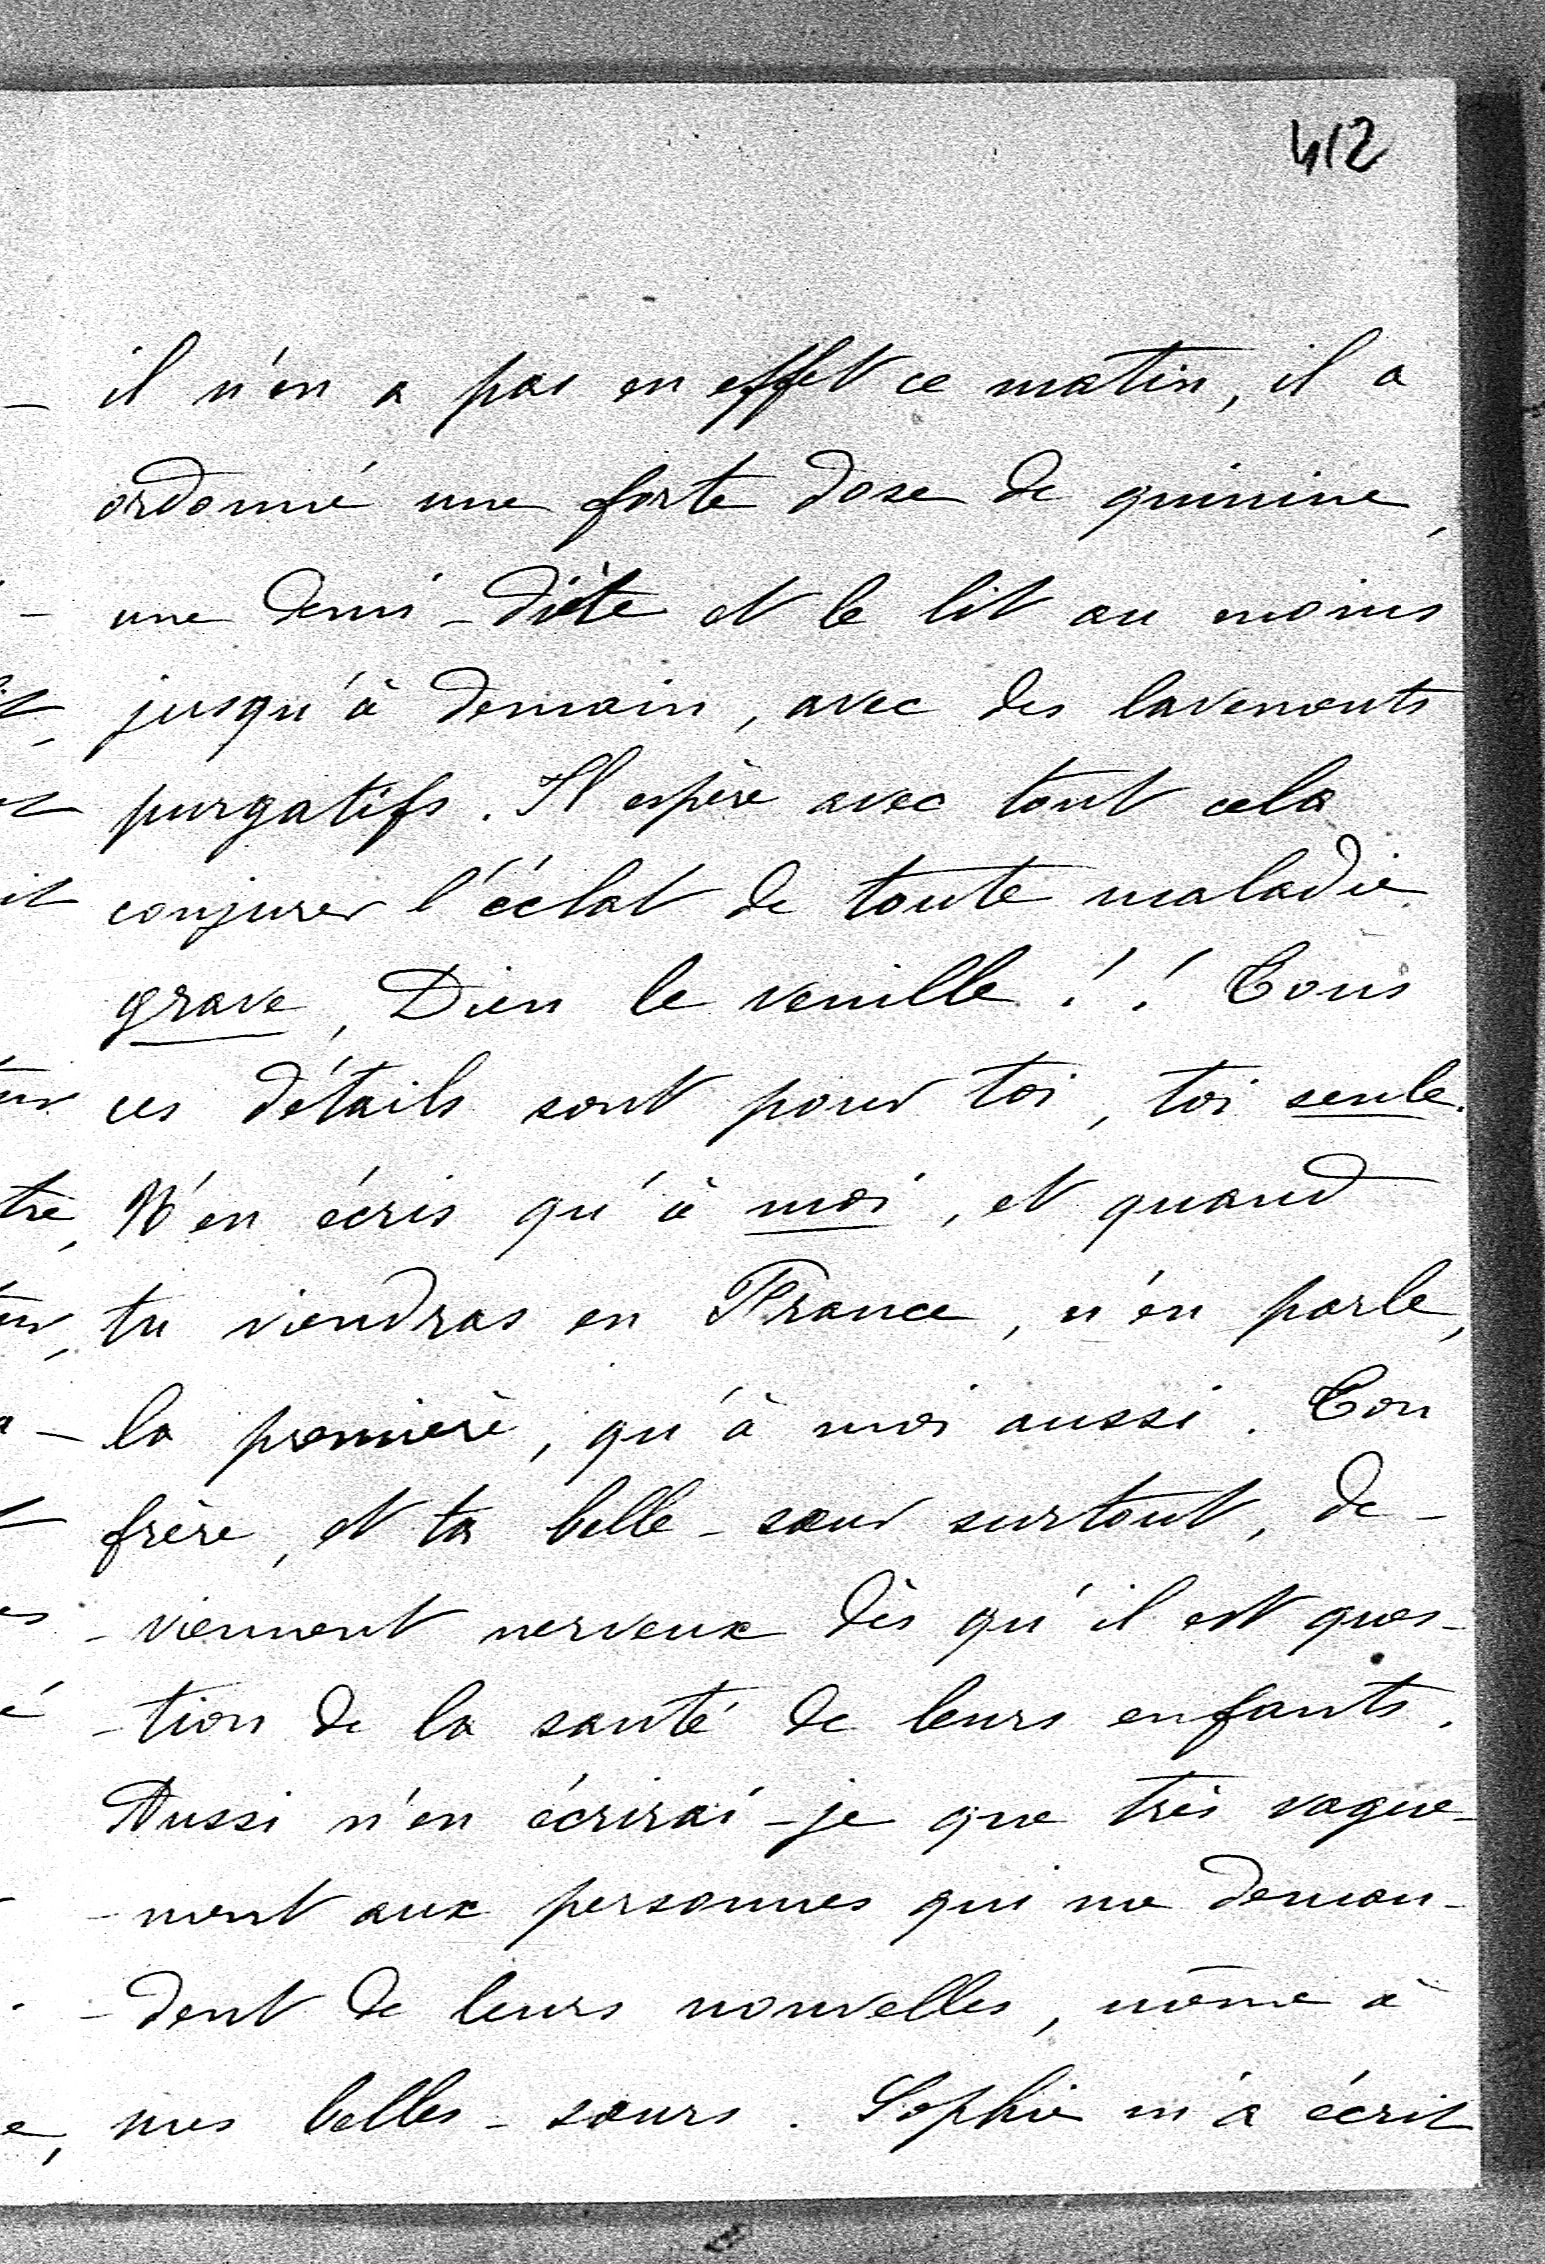 412
il n'en a pas en effet ce matin, il a
ordonné une forte dose de quinine,
une demi-diète et le lit au moins
jusqu'à demain, avec des lavements
purgatifs. Il espère avec tout cela
conjurer l'éclat de toute maladie
grave, Dieu le veuille !! Tous
ces détails sont pour toi, toi seule.
N'en écris qu'à moi, et quand
tu viendras en France, n'en parle,
la première, qu'à moi aussi. Ton
frère, et ta belle-sœur surtout, de-
-viennent nerveux dès qu'il est ques-
-tion de la santé de leurs enfants.
Aussi n'en écrirai-je que très vague-
-ment aux personnes qui me deman-
-dent de leurs nouvelles, même à
mes belles-sœurs. Sophie m'a écrit